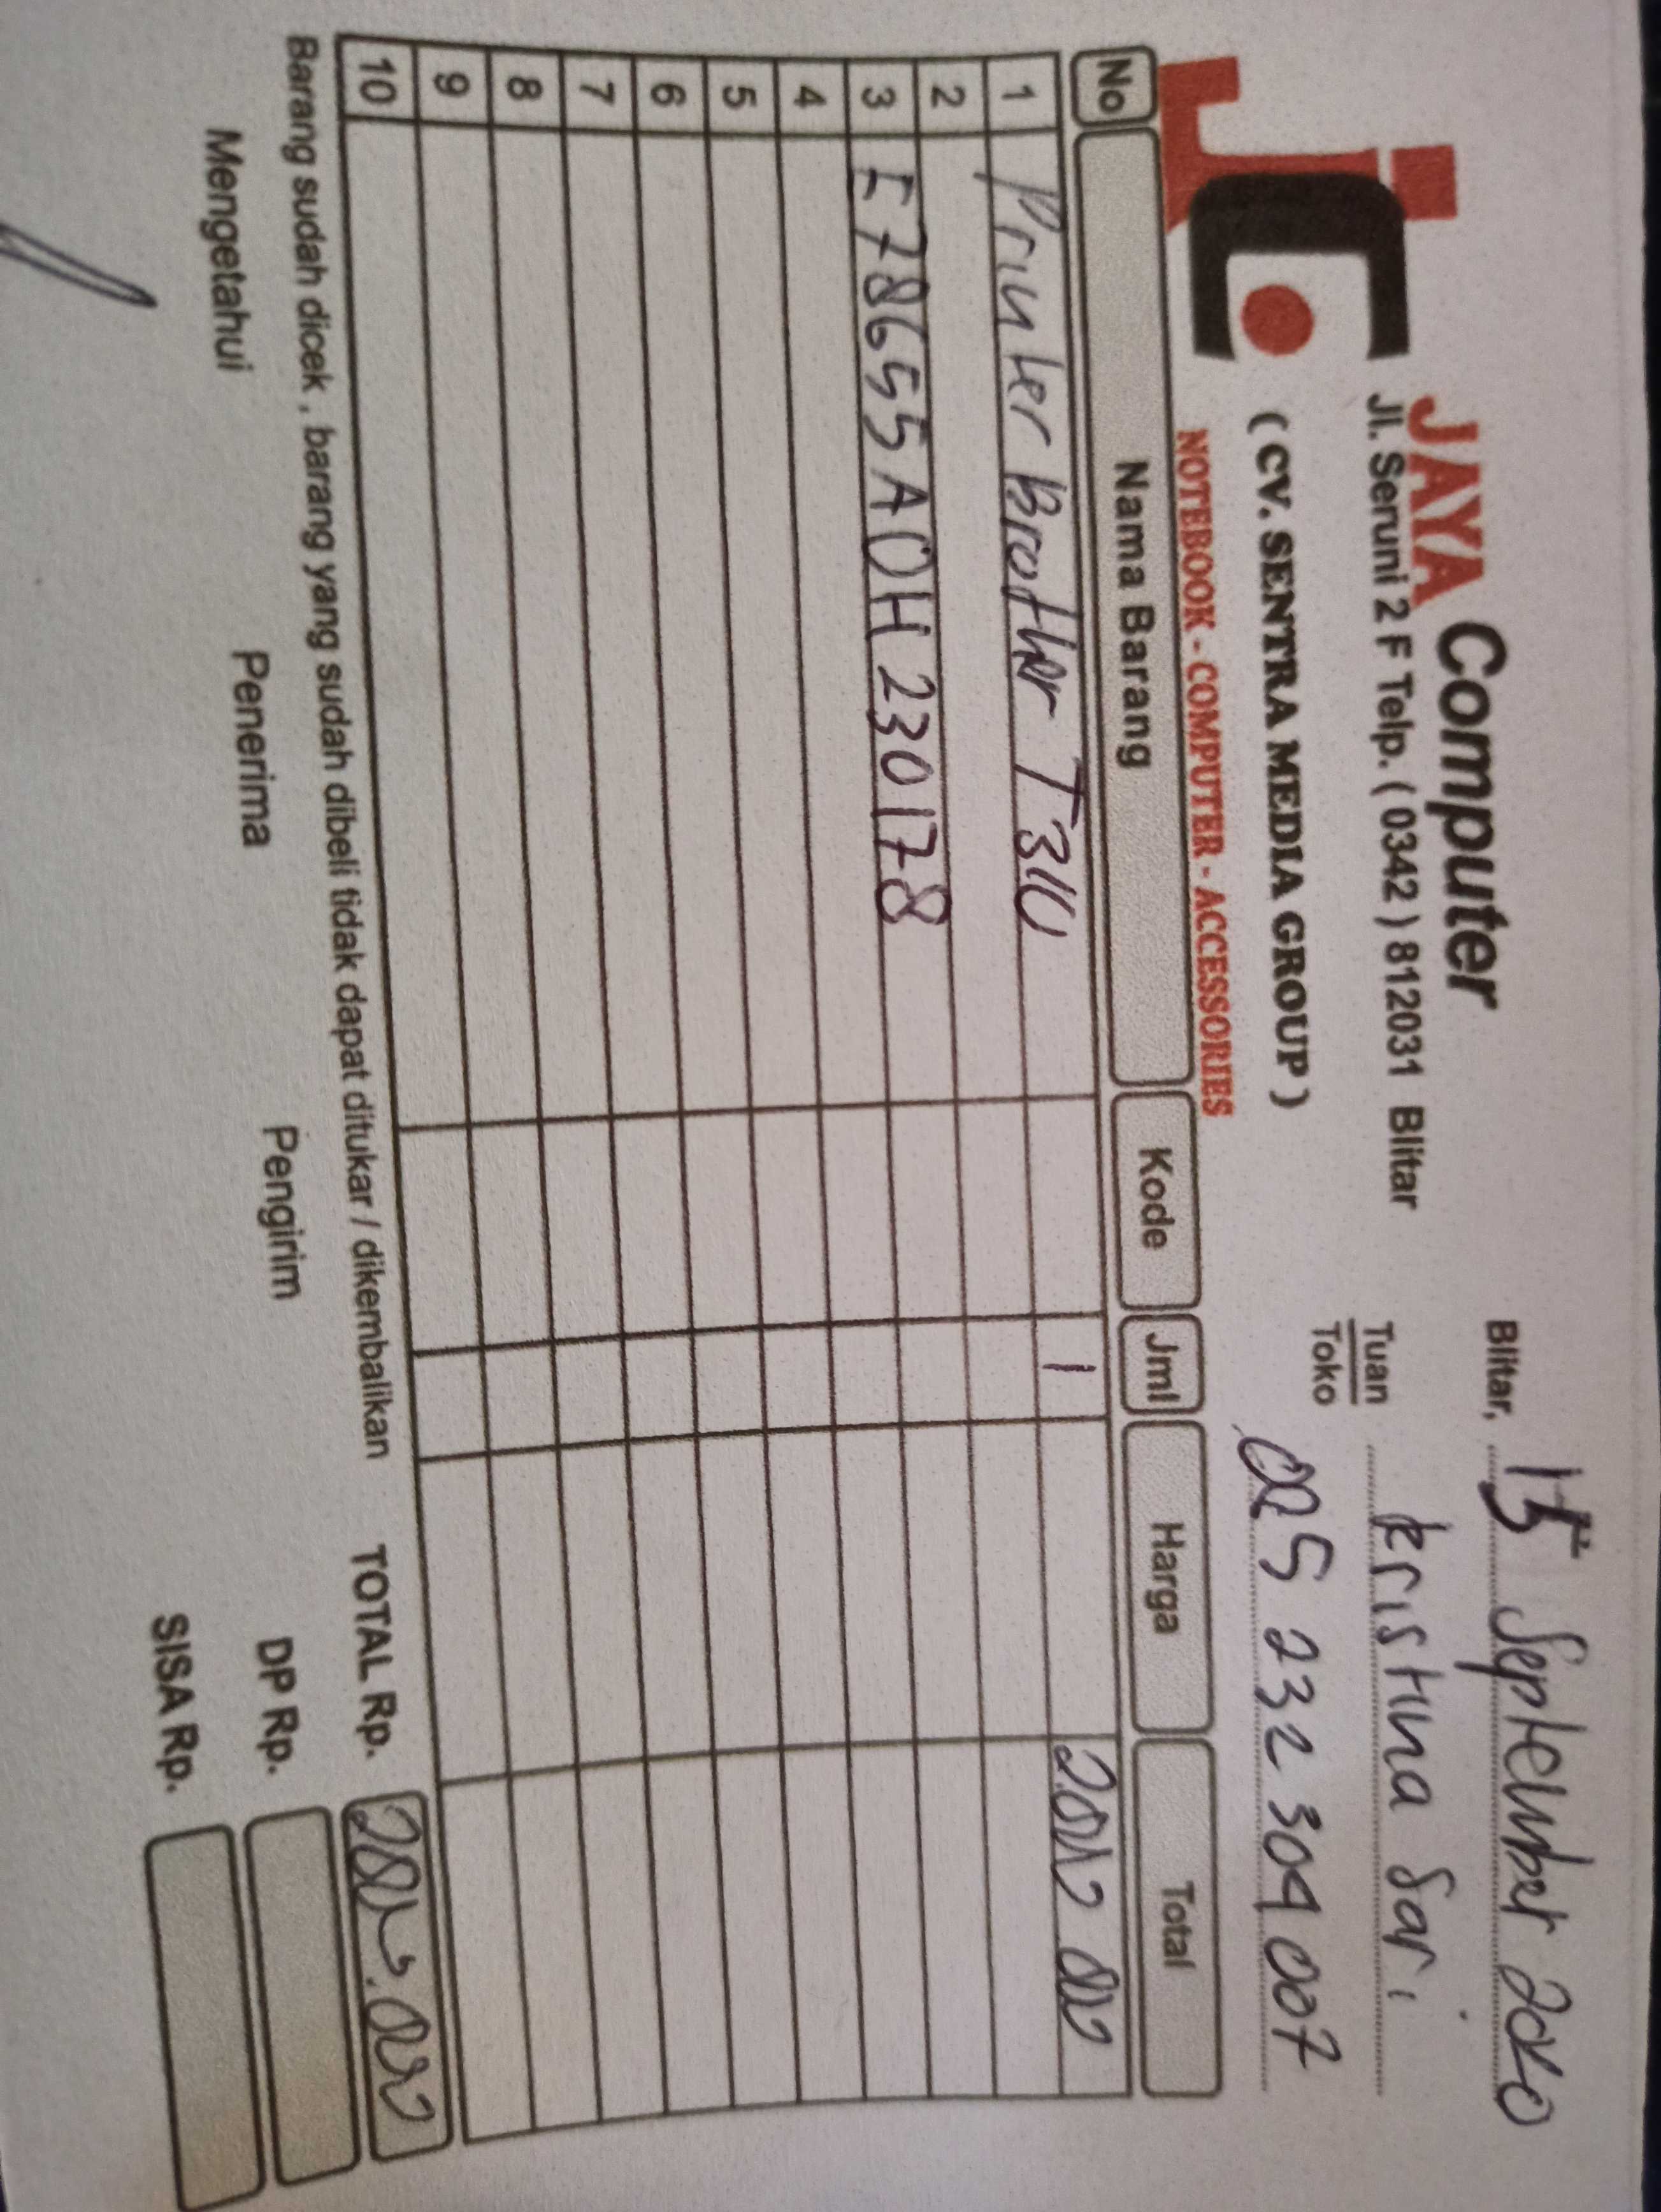 JAYA Computer
Jl. Seruni 2 F Telp. ( 0342 ) 812031 Blitar
( CV. SENTRA MEDIA GROUP )
NOTEBOOK - COMPUTER - ACCESSORIES
Blitar, 15 September 2020
Tuan
Toko
Kristina Sari
085 232 304 007
No Nama Barang Kode Jml Harga Total
1 Printer Brother T310 1
2
3 E78655A0H230178
4
5
6
7
8
9
10
Barang sudah dicek , barang yang sudah dibeli tidak dapat ditukar / dikembalikan
TOTAL Rp.
DP Rp.
SISA Rp.
Mengetahui Penerima Pengirim